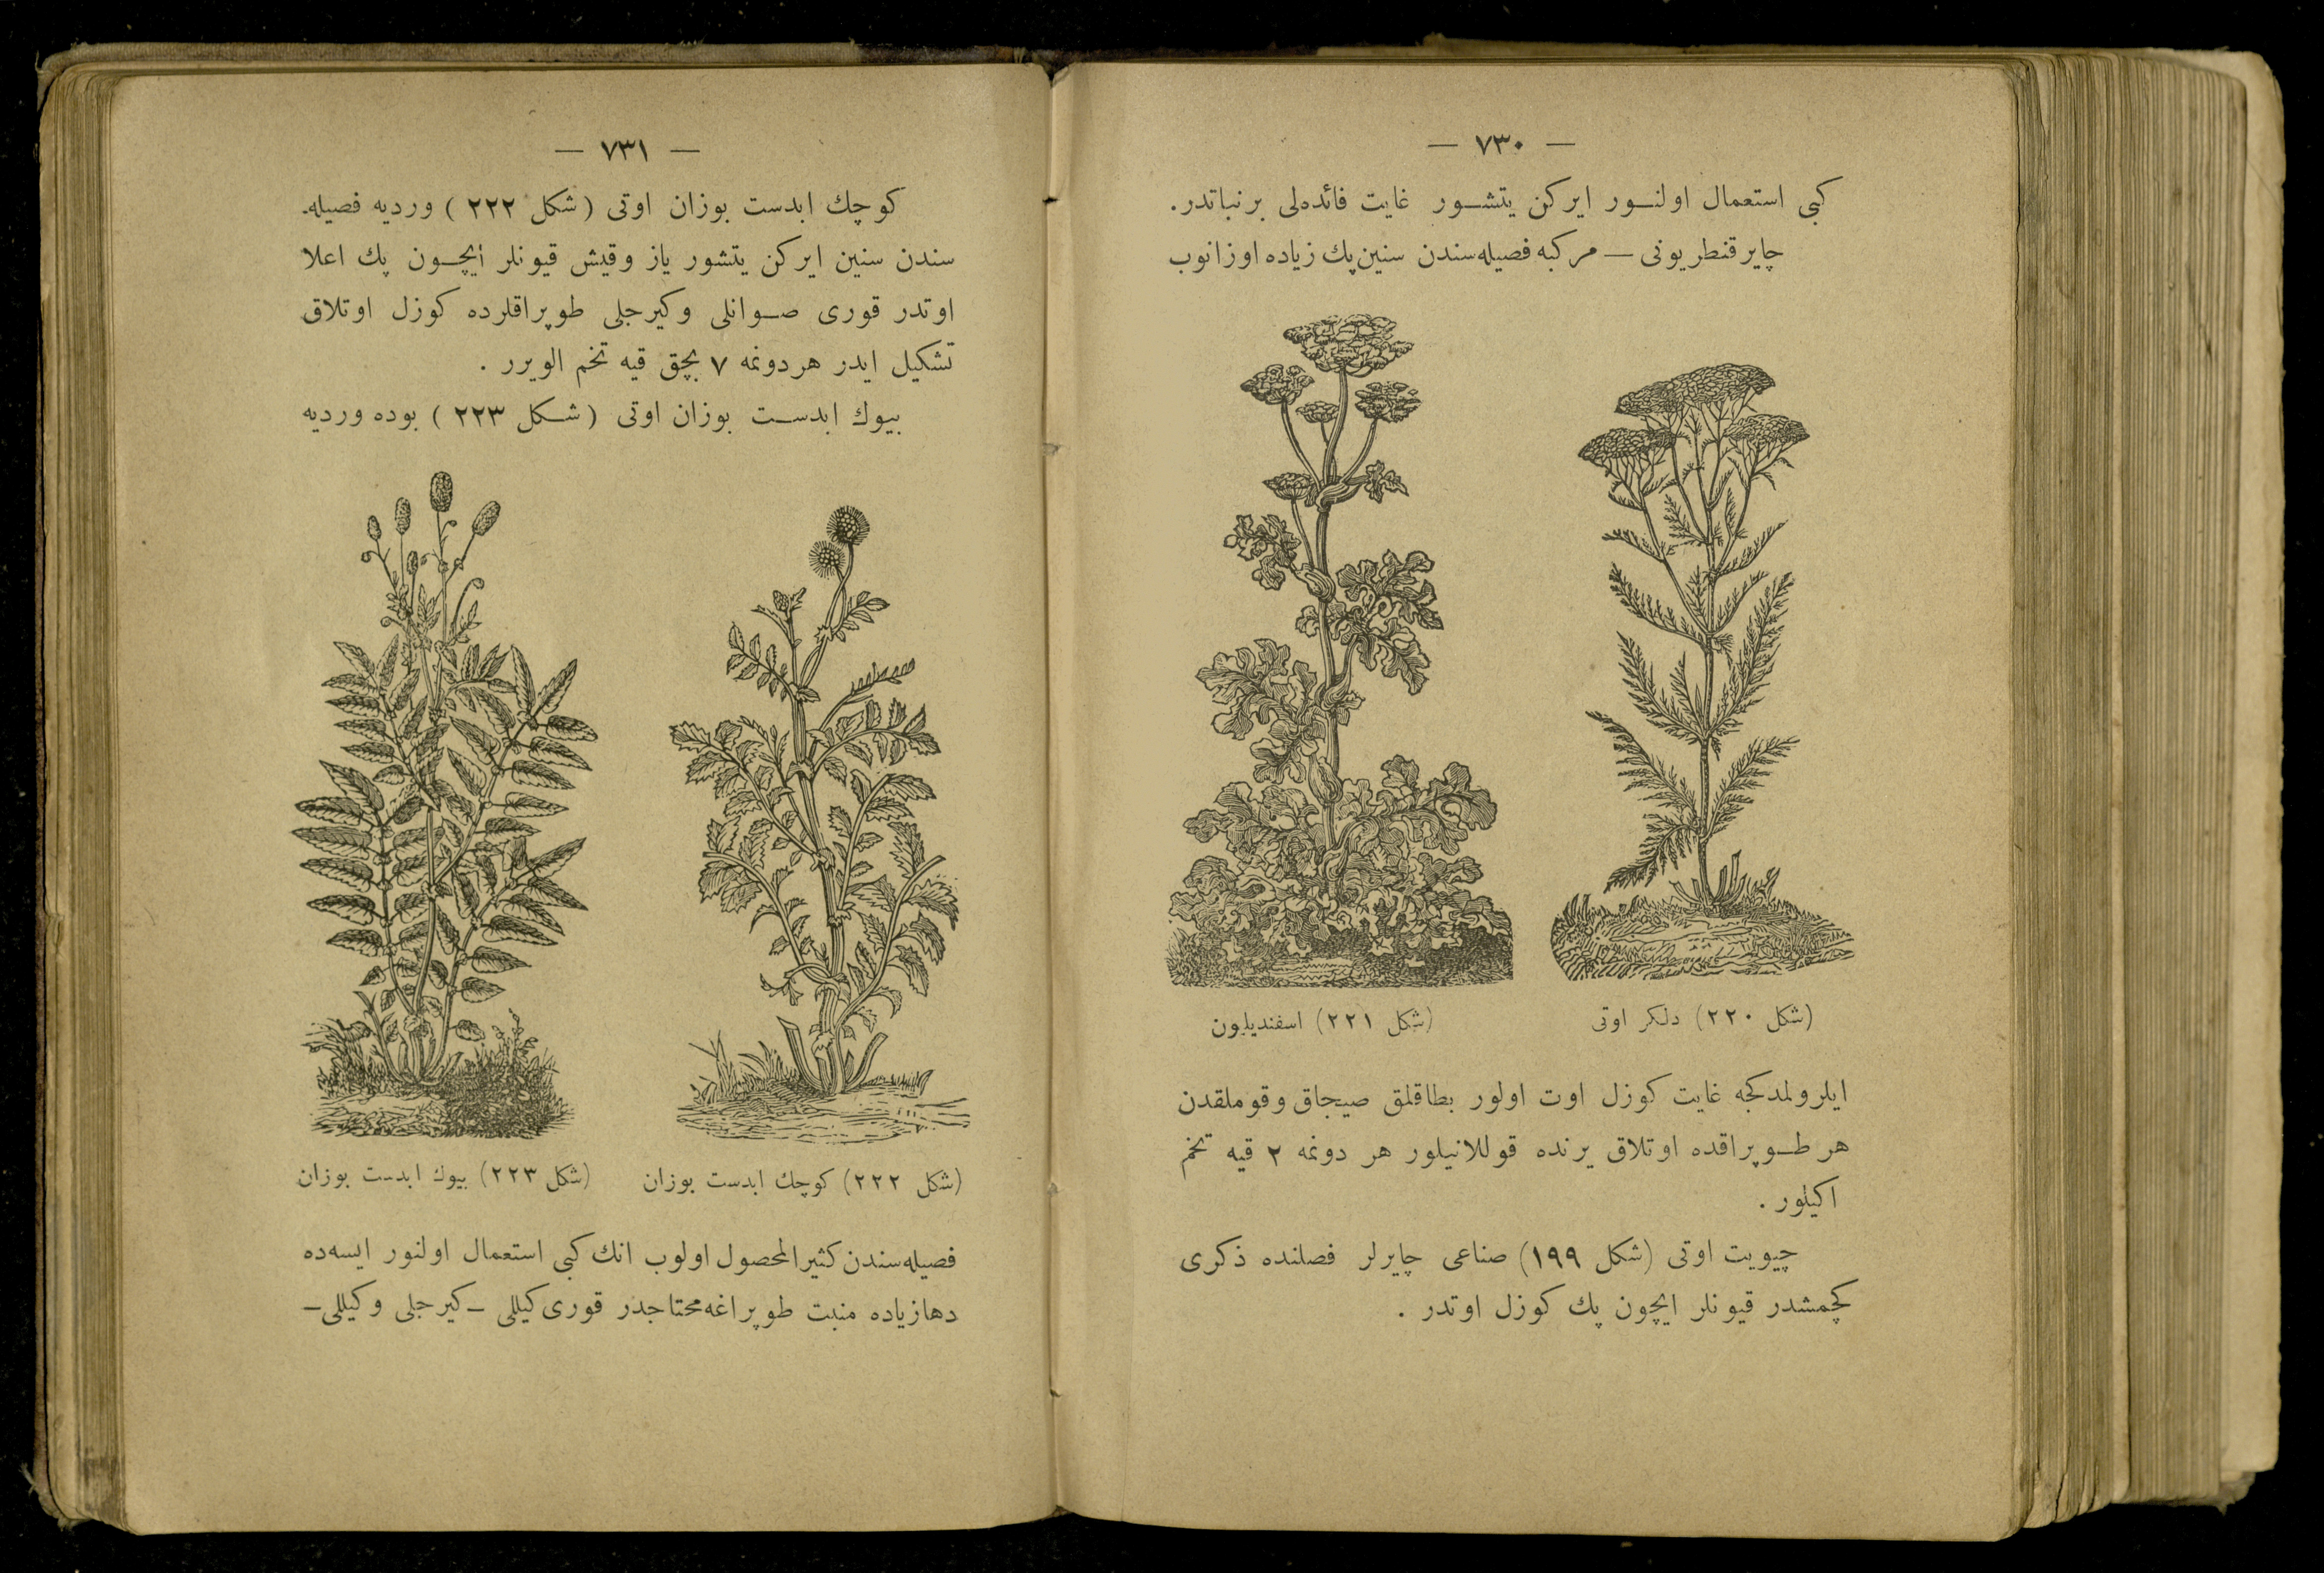 — ٧٣٠ —
كبی استعمال اولنور ايركن يتشور غايت فائده‌لی برنباتدر.
چاير قنطريونی — مركبه فصيله‌سندن سنين پك زياده اوزانوب
(شكل ٢٢٠) دلكر اوتی
(شكل ٢٢١) اسفنديليون
ايلرولمدكجه غايت كوزل اوت اولور بطاقلق صيجاق وقوملقدن
هر طوپراقده اوتلاق يرنده قوللانيلور هر دونمه ٢ قيه تخم
اكيلور .
چيويت اوتی (شكل ١٩٩) صناعی چايرلر فصلنده ذكری
كچمشدر قيونلر ايچون پك كوزل اوتدر .
— ٧٣١ —
كوچك ابدست بوزان اوتی (شكل ٢٢٢) ورديه فصيله‌
سندن سنين ايركن يتشور ياز وقيش قيونلر ايچون پك اعلا
اوتدر قوری صوانلی وكيرجلی طوپراقلرده كوزل اوتلاق
تشكيل ايدر هر دونمه ٧ بچق قيه تخم الويرر .
بيوك ابدست بوزان اوتی (شكل ٢٢٣) بوده ورديه
(شكل ٢٢٢) كوچك ابدست بوزان
(شكل ٢٢٣) بيوك ابدست بوزان
فصيله‌سندن كثيرالمحصول اولوب انك كبی استعمال اولنور ايسه‌ده
دها زياده منبت طوپراغه محتاجدر قوری كيللی – كيرجلی وكيللی –